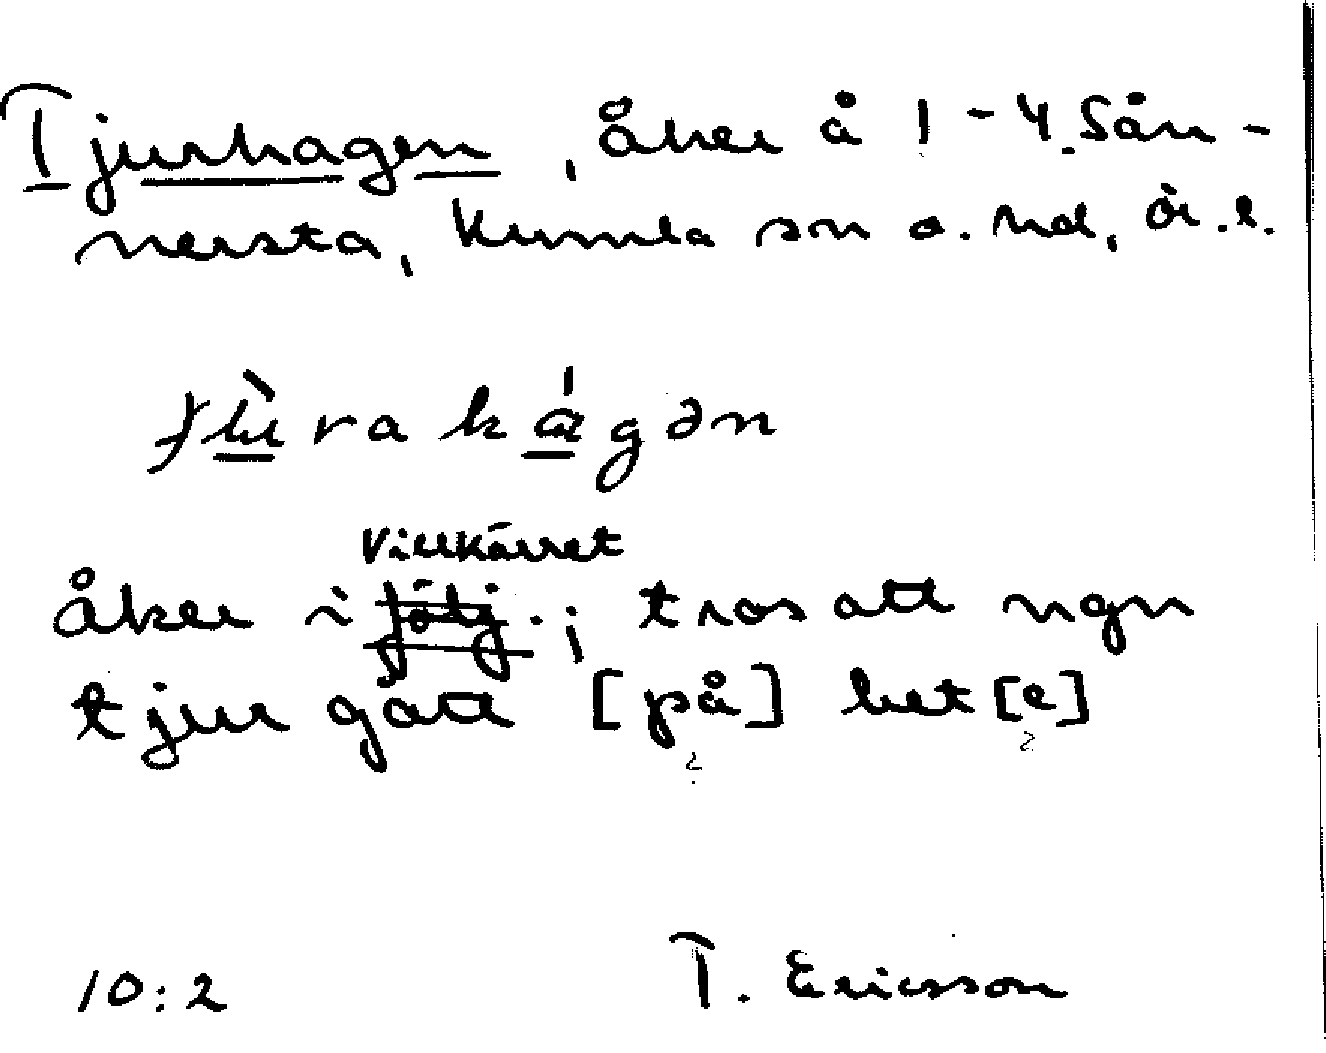 Tjurhagen, åker å 1-4 Sån-
nersta, Kumla sn o. hd, Ör. l.
Villkärret
åker i följ.; tros att ngn
tjur gått [på] bet[e]
? ?
10:2 T. Ericsson